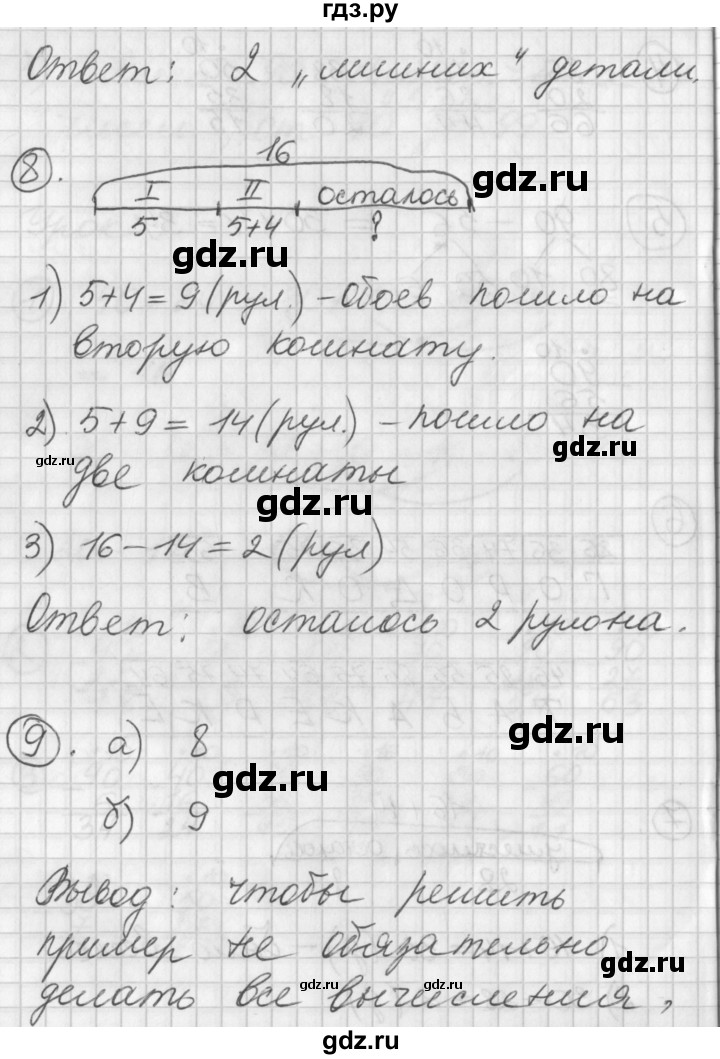 гдз.ру
Ответ: 2 „лишних“ детали.
8. 16
I II осталось
5 5+4 ?
gdz.ru
gdz.ru
1) 5+4=9(рул.) - обоев пошло на
вторую комнату.
gdz.ru
2) 5+9= 14(рул.) - пошло на
gdz.ru
gdz.ru
две комнаты
gdz.ru
3) 16-14=2(рул)
Ответ: осталось 2 рулона.
9. а) 8
gdz.ru
gdz.ru
б) 9
Вывод: чтобы решить
пример не обязательно
gdz.ru
gdz.ru
делать все вычисления,
gdz.ru